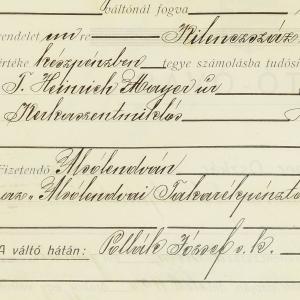 váltónál fogva
rendelet un re Kilenczszáz
értéke készpénzben tegye számolásba tudósí
T. Heinrich Mayer úr
Kerkaszentmiklós
Fizetendő Alsólendván
az „Alsólendvai Takarékpénztá
A váltó hátán: Pollák József s. k.